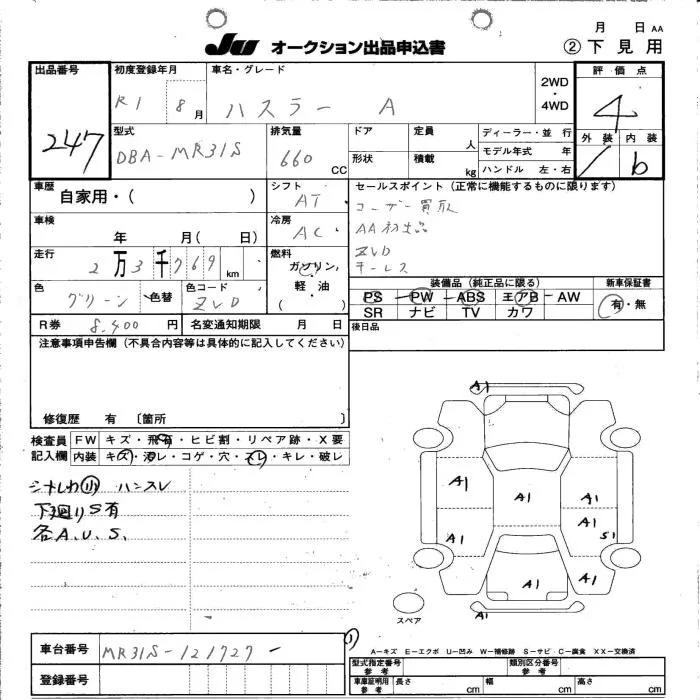 月 日 AA
JU オークション出品申込書
② 下見用
出品番号
247
初度登録年月
R1 8月
車名・グレード
ハスラー A
2WD
4WD
評価点
4
外装 内装
b
型式
DBA-MR31S
排気量
660 CC
ドア
形状
定員 人
積載 kg
ディーラー・並行
モデル年式 年
ハンドル 左・右
車歴
自家用・( )
シフト
AT
セールスポイント(正常に機能するものに限ります)
ユーザー買取
AA初出品
ZVD
キーレス
車検
年 月( 日)
冷房
AC
走行
2万3千769km
燃料
ガソリン,
軽油
( )
色
グリーン
色替
色コード
ZVD
装備品(純正品に限る)
新車保証書
PS PW ABS エアB AW
SR ナビ TV カワ
有・無
R券 8,400円
名変通知期限 月 日
後日品
注意事項申告欄(不具合内容等は具体的に記入してください)
修復歴 有 〔箇所 〕
検査員
記入欄
FW キズ・飛石・ヒビ割・リペア跡・X要
内装 キズ・汚レ・コゲ・穴・スレ・キレ・破レ
シートしわ小 ハンスレ
下廻りS有
各A.U.S.
A1
A1
A1
A1
A1
A1
S1
A1
A1
A1
スペア
A1
車台番号
MR31S-121727-
登録番号
①
A-キズ E-エクボ U-凹み W-補修跡 S-サビ C-腐食 XX-交換済
型式指定番号
参考
類別区分番号
参考
車庫証明用
参考
長さ cm
幅 cm
高さ cm